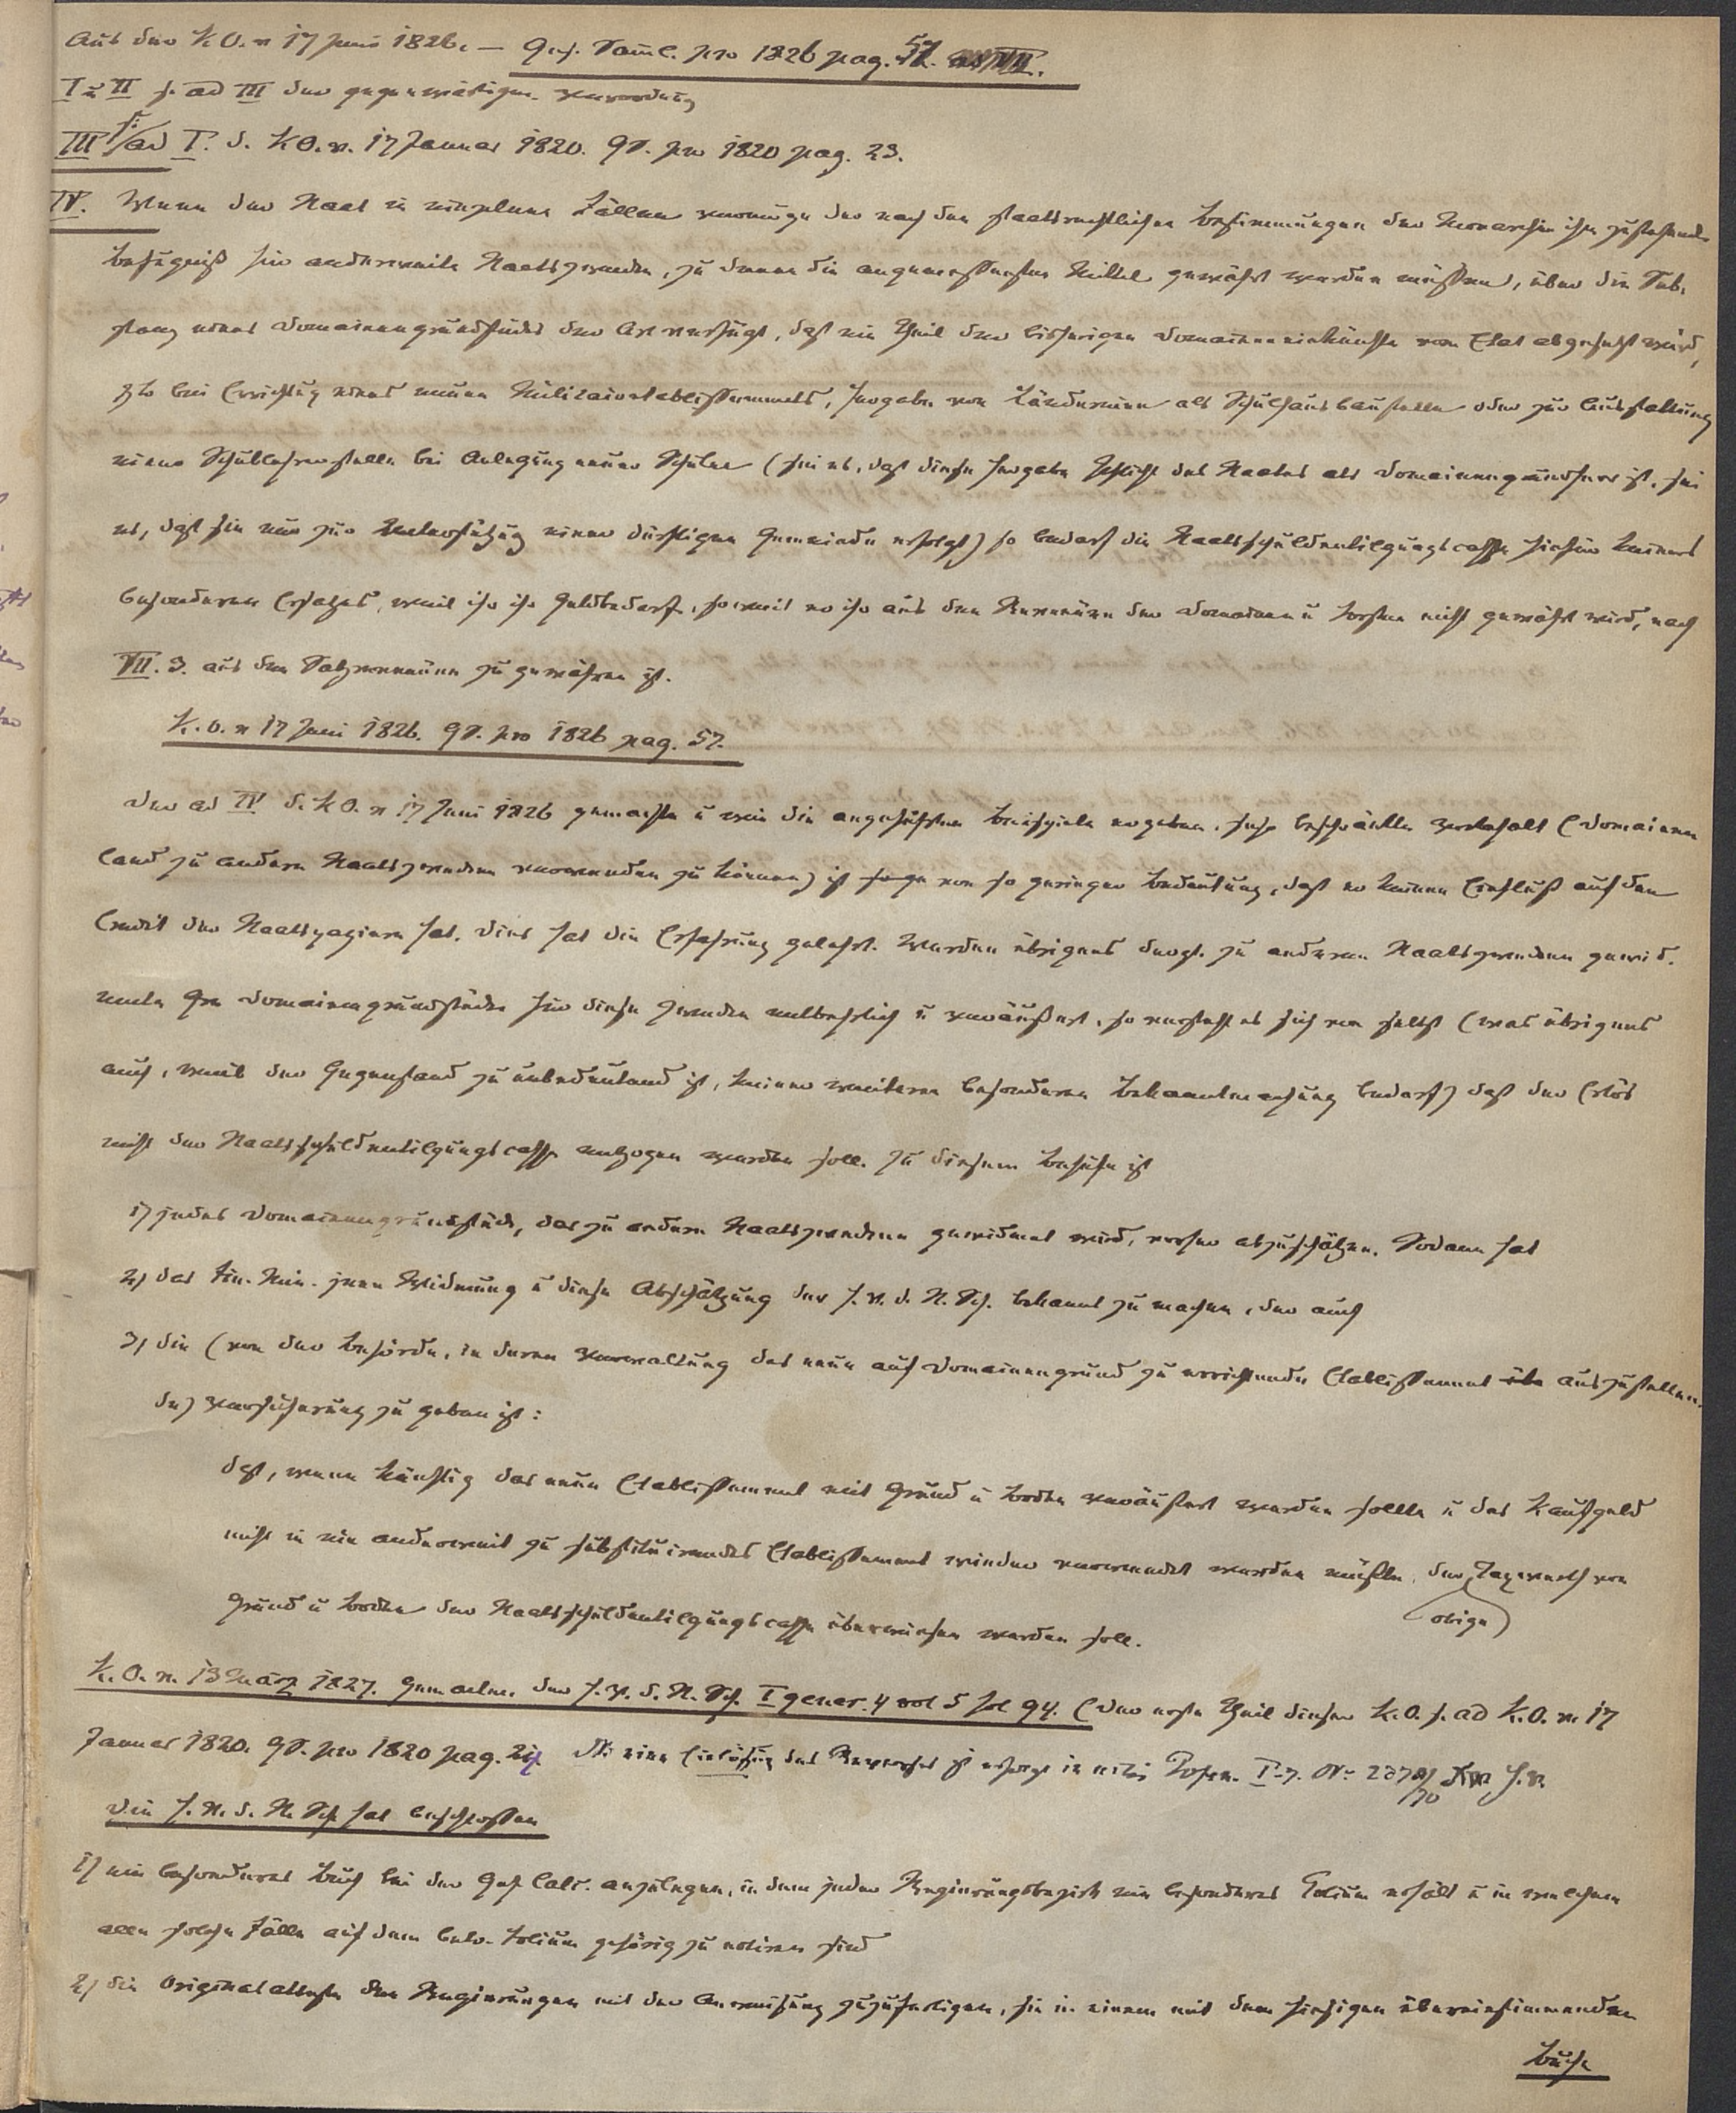 Aus der K.O. v 17 Juni 1826. — Ges. Saml. pro 1826 pag. 57.
I u II s. ad III der gegenwärtigen Verordnung
III s. ad I. d. K.O. v. 17 Januar 1820. GS. pro 1820 pag. 23.
IV. Wenn der Staat in einzelnen Fällen vermöge der nach den staatsrechtlichen Bestimmungen der Monarchie ihm zustehenden
Befugniß für anderweite Staatszwecke, zu denen die angemessensten Mittel gewährt werden müssen, über die Sub-
stanz eines Domainengrundstücks der Art verfügt, daß ein Theil der bisherigen Domaineneinkünfte vom Etat abgesetzt wird,
zb bei Errichtung eines neuen Militairetablissements, Hergabe von Ländereien als Schulhausbaustelle oder zur Ausstattung
einer Schullehrerstelle bei Anlegung neuer Schulen (sei es, daß diese Hergabe Pflicht des Staates als Domainengrundherr ist, sei
es, daß sie nur zur Unterstützung einer dürftigen Gemeinde erfolgt) so bedarf die Staatsschuldentilgungscasse hiefür keines
besonderen Ersatzes, weil ihr ihr Geldbedarf, soweit er ihr aus den Revenüen der Domainen u Forsten nicht gewährt wird, nach
VII. 3. aus den Salzrevenüen zu gewähren ist.
K.O. v 17 Juni 1826. GS. pro 1826 pag. 57.
Der ad IV d. K.O. v 17 Juni 1826 gemachte u wie die angeführten Beispiele ergeben, sehr beschränkte Vorbehalt (Domainen
land zu andern Staatszwecken verwenden zu können) ist von so geringer Bedeutung, daß er keinen Einfluß auf den
Credit der Staatspapiere hat. Dies hat die Erfahrung gelehrt. Werden übrigens dergl. zu anderen Staatszwecken gewid-
mete Domainengrundstücke für diese Zwecke entbehrlich u veräußert, so versteht es sich von selbst (was übrigens
auch, weil der Gegenstand zu unbedeutend ist, keiner weiteren besonderen Bekanntmachung bedarf) daß der Erlös
nicht der Staatsschuldentilgungscasse entzogen werden soll. Zu diesem Behufe ist
1) jedes Domainengrundstück, das zu andern Staatszwecken gewidmet wird, vorher abzuschätzen. Sodann hat
2) das Fin. Min. jene Widmung u diese Abschätzung der H.V. d. St. Sch. bekannt zu machen, der auch
3) die (von der Behörde, in deren Verwaltung das neue auf Domainengrund zu errichtende Etablissement auszustellen-
de) Versicherung zu geben ist:
daß, wenn künftig das neue Etablissement mit Grund u Boden veräußert werden sollte u das Kaufgeld
nicht in ein anderweit zu substituirendes Etablissement wieder verwendet werden müßte, der Taxwerth von
(obige)
Grund u Boden der Staatsschuldentilgungscasse überwiesen werden soll.
K.O. v. 13 März 1827. Gen. acten. der H.V. d. St. Sch. I gener. 4 vol 5 fol 94. (Der erste Theil dieser K.O. s. ad K.O. v. 17
Januar 1820. GS. pro 1820 pag. 21. Einlösung des Reverses ist erfolgt in actis Posen. I.
Die H.V. d. St. Sch. hat beschlossen
1) ein besonderes Buch bei der Geh. Calc. anzulegen, in dem jeder Regierungsbezirk ein besonderes Folium erhält u in welchem
alle solche Fälle auf dem betr. Folium gehörig zu notiren sind
2) die Originalatteste den Regierungen mit der Anweisung zuzufertigen, sie in einem mit dem hiesigen übereinstimmenden
Buche